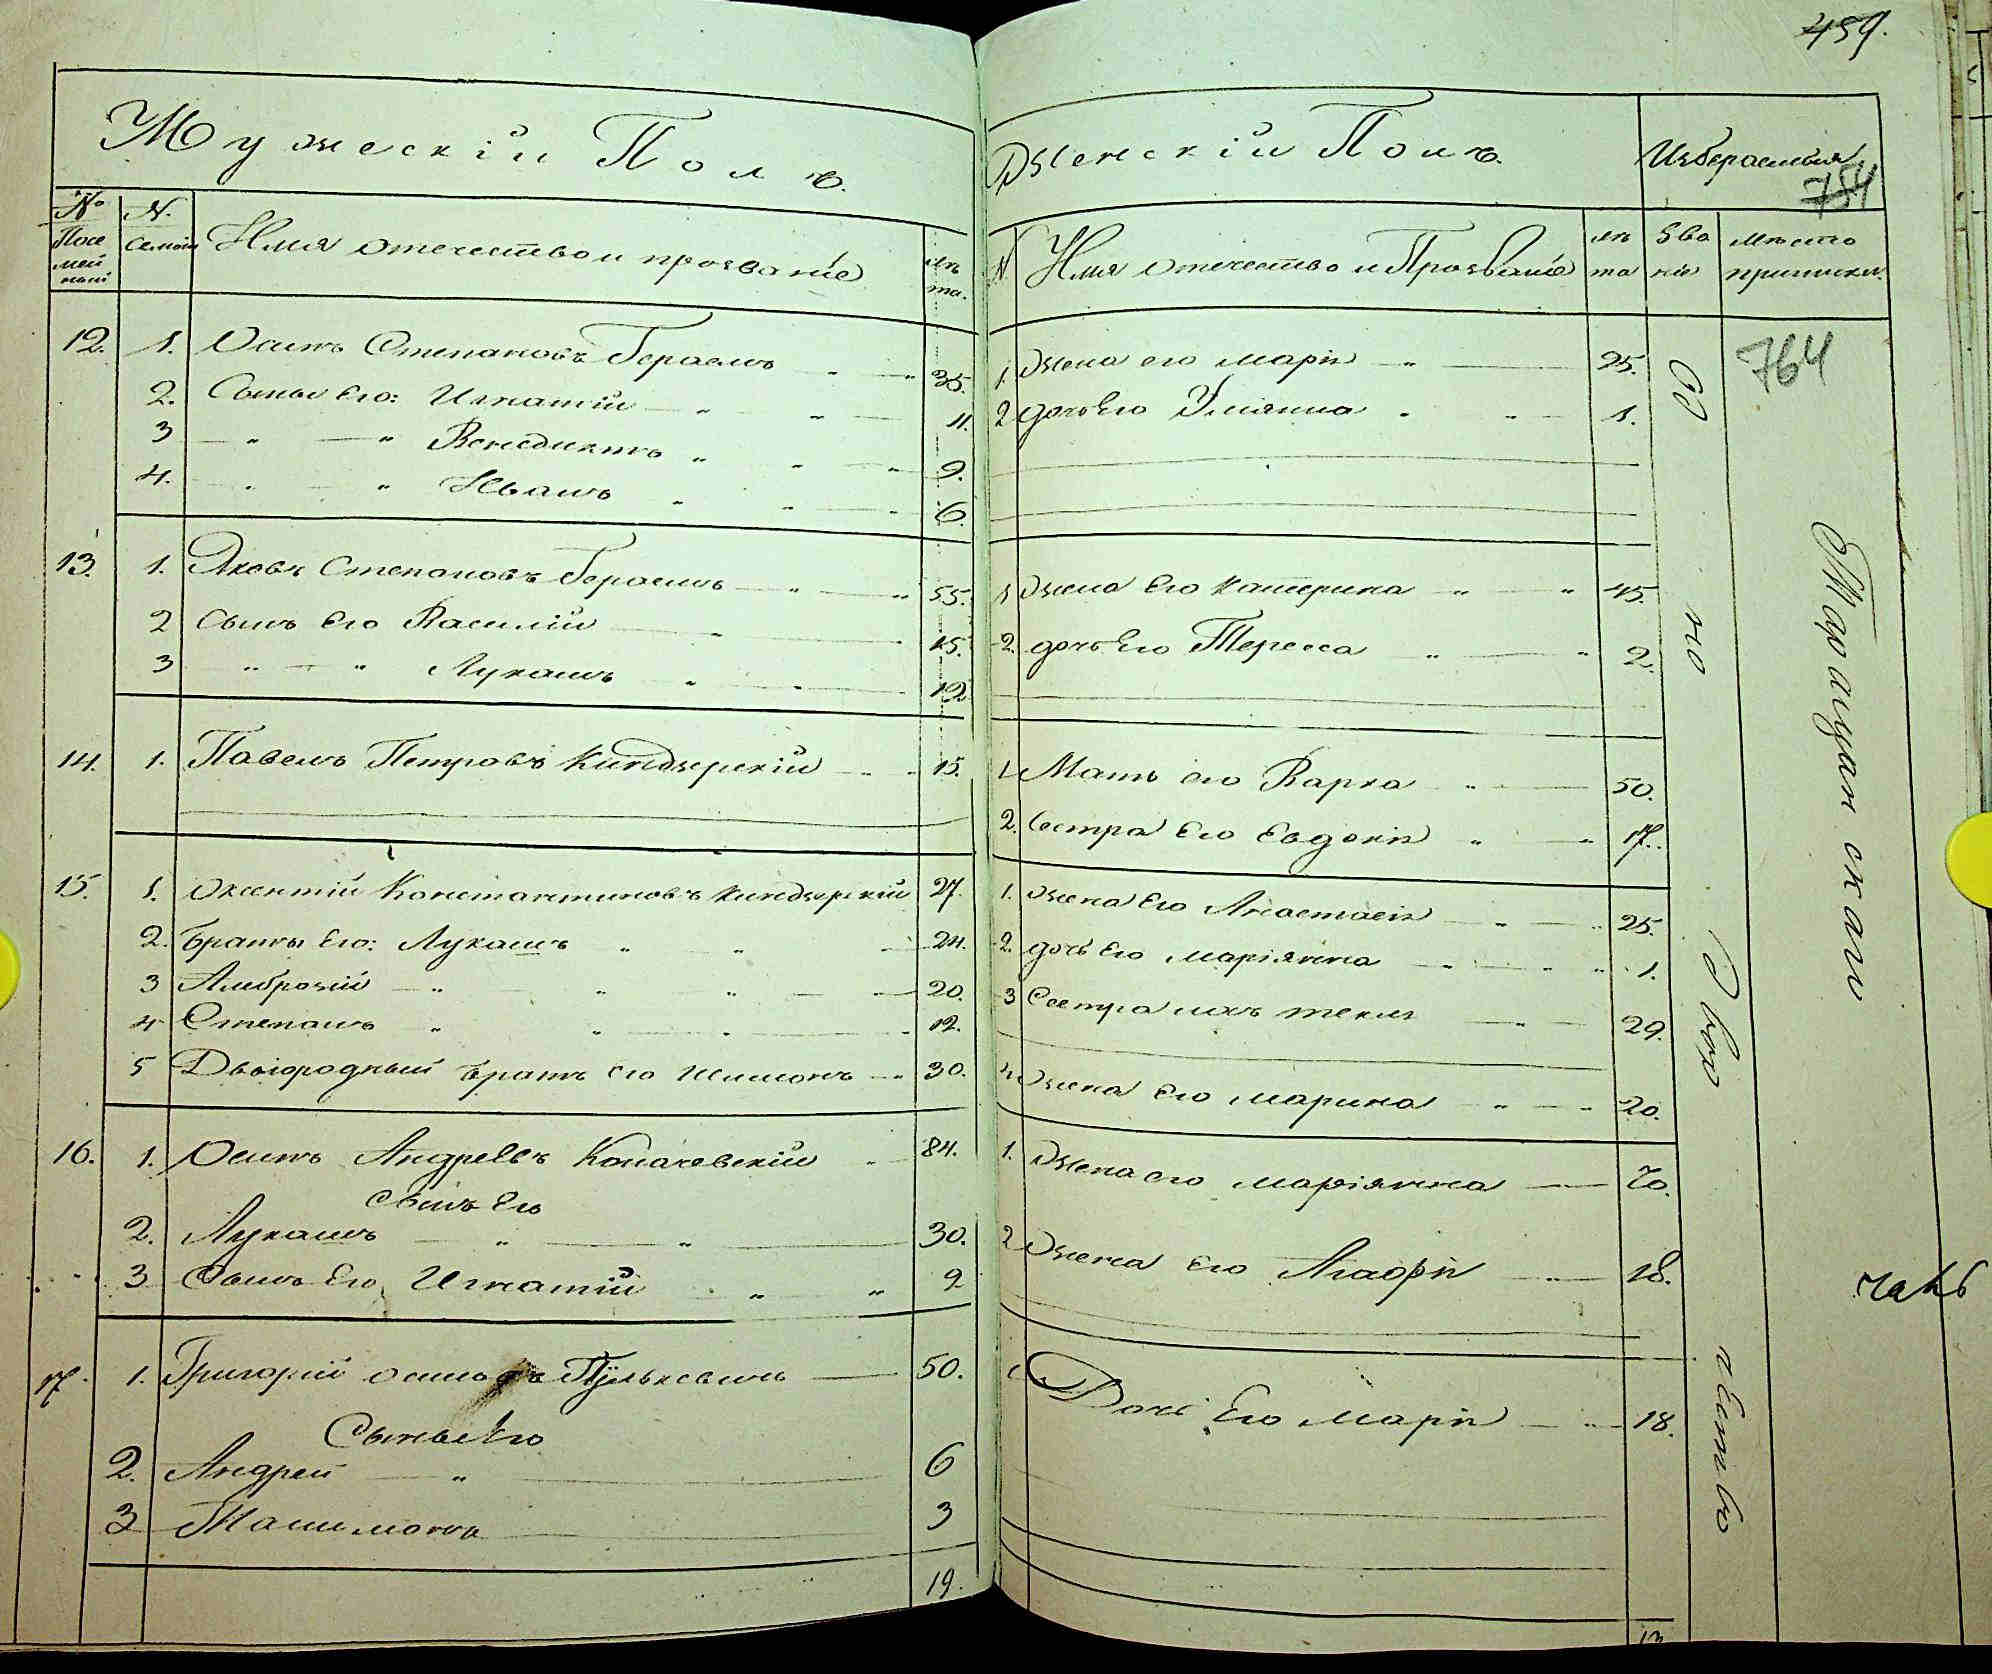 459.
Мужескій Полъ.
№ Посемейный
N. Семьи
Имя отечество и прозваніе
лѣта.
12. 1. Осипъ Степановъ Герасимъ 35.
2. Сыны Его: Игнатій 11.
3 Венедиктъ 9.
4. Иванъ 6.
13. 1. Яковъ Степановъ Герасимъ 55.
2 Сынъ Его Василій 15.
3 Лукашъ 12
14. 1. Павелъ Петровъ Киндзерскій 15.
15. 1. Оксентій Константиновъ Киндзерскій 27.
2. Браты Его: Лукашъ 24.
3 Амброзій 20.
4 Степанъ 12.
5 Двоіородный братъ Его Шимонъ 30.
16. 1. Осипъ Андреевъ Копачевскій 84.
Сынъ Его
2. Лукашъ 30.
3 Сынъ Его Игнатій 9
17. 1. Григорій Осиповъ Пулькевичъ 50.
Сыны Его
2. Андрей 6
3
3
19.
Женскій Полъ.
Избераемыя
754
N. Имя отечество и Прозваніе
лѣта
Званіе
Мѣсто приписки.
1. Жена его Марія 25.
2 дочь Его Уліянна 1.
1 Жена Его Катерина 45.
2. дочь Его Тересса 2.
1. Мать его Варка 50.
2. Сестра Его Евдокія 17.
1. Жена Его Анастасія 25.
2. дочь Его Маріянна 1.
3 Сестра ихъ текля 29.
4 Жена Его Марина 20.
1. Жена его Маріянна 70.
2 Жена Его Агафія 18.
Дочь Его Марія 18.
Однодворчество
764
Таращанскаго